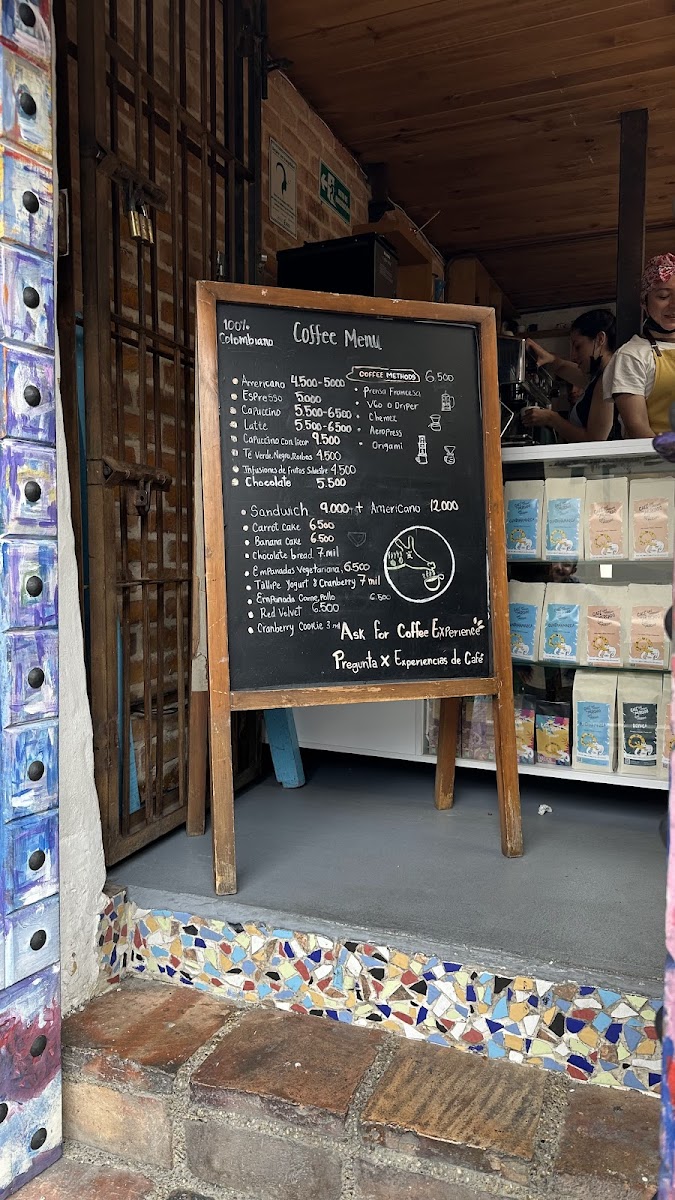 100% Colombiano
Coffee Menu
Americano 4.500-5000
Espresso 5.000
Capuccino 5.500-6500
Latte 5.500-6.500
Capuccino con licor 9.500
Té Verde, Negro, Rooibos 4.500
Infusiones de Frutos Silvestre 4.500
Chocolate 5.500
COFFEE METHODS 6.500
Prensa Francesa
V60 o Driper
Chemex
Aeropress
Origami
Sandwich 9.000 + Americano 12.000
Carrot cake 6.500
Banana cake 6.500
Chocolate bread 7 mil
Empanadas Vegetariana, 6.500
Tallipe Yogurt & Cranberry 7 mil
Empanada Carne, Pollo 6.500
Red Velvet 6.500
Cranberry Cookie 3 mil
Ask for Coffee Experience
Pregunta x Experiencias de Café